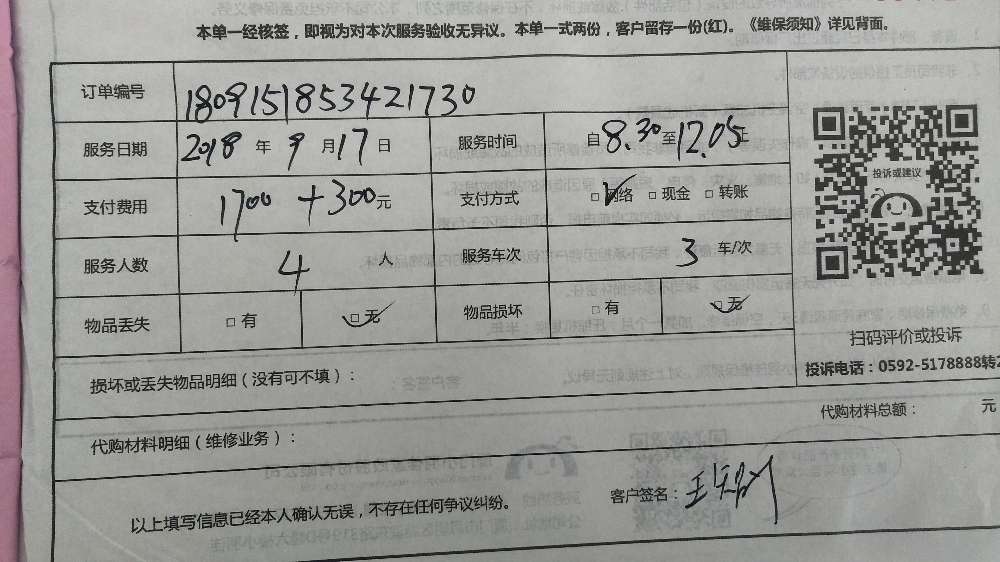 本单一经核签，即视为对本次服务验收无异议。本单一式两份，客户留存一份(红)。《维保须知》详见背面。
订单编号 1809151853421730
服务日期 2018 年 9 月 17 日 服务时间 自 8.30 至 12.05
支付费用 1700 + 300 元 支付方式 □ 网络 □ 现金 □ 转账
服务人数 4 人 服务车次 3 车/次
物品丢失 □ 有 □ 无 物品损坏 □ 有 □ 无
投诉或建议
扫码评价或投诉
投诉电话：0592-5178888转2
损坏或丢失物品明细（没有可不填）：
代购材料总额： 元
代购材料明细（维修业务）：
以上填写信息已经本人确认无误，不存在任何争议纠纷。 客户签名：